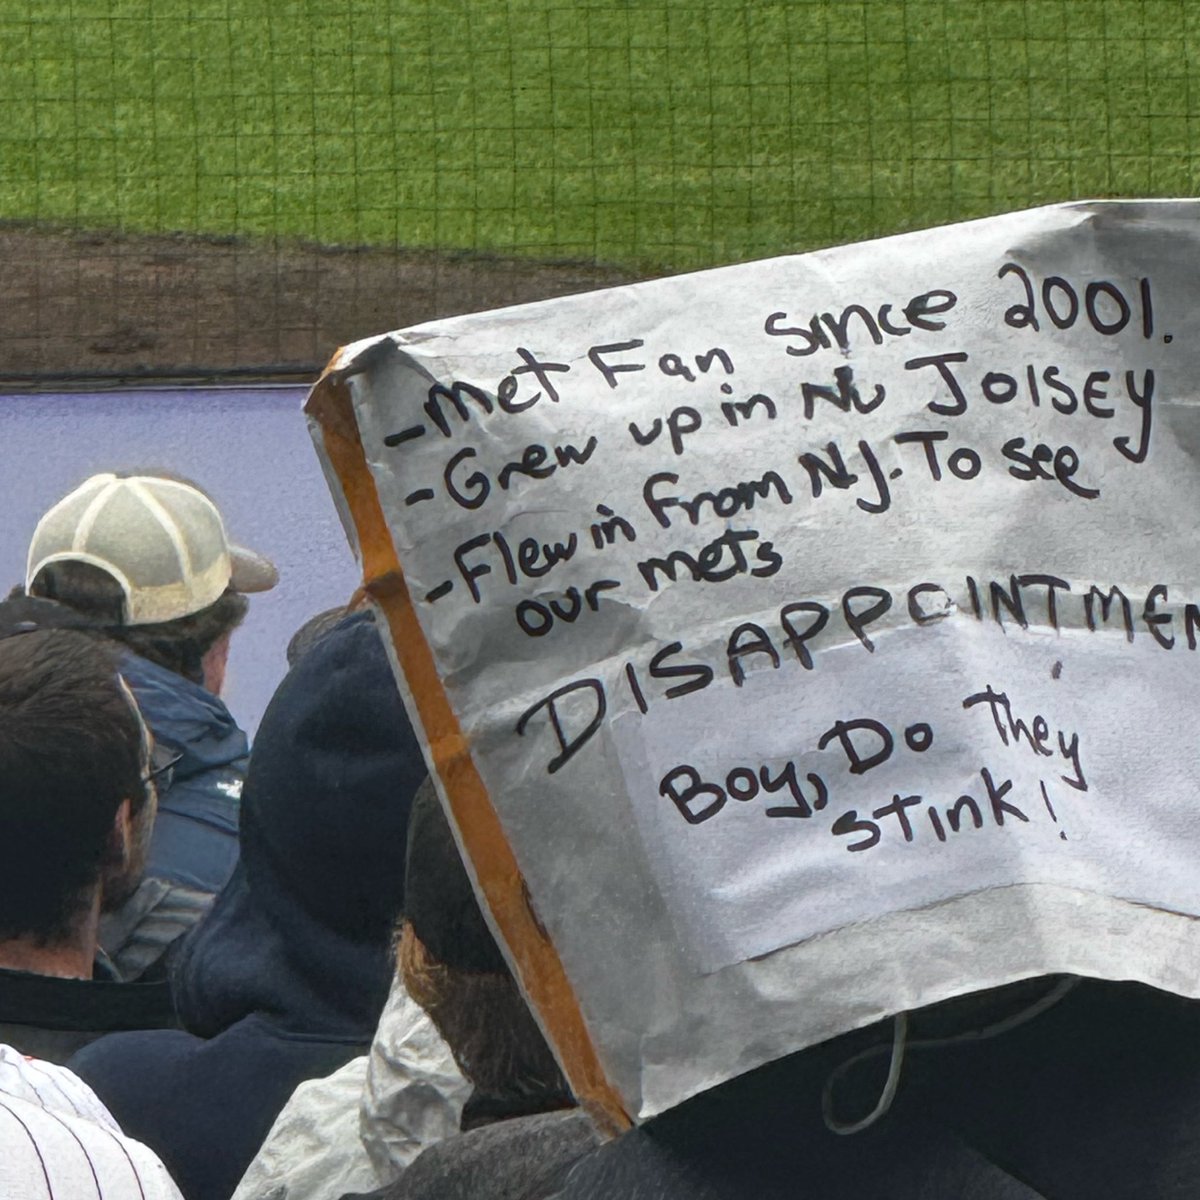 - Met Fan Since 2001.
- Grew up in NU JOISEY
- Flew in from NJ. To see
our mets
DISAPPOINTMEN
Boy, Do They
STink!